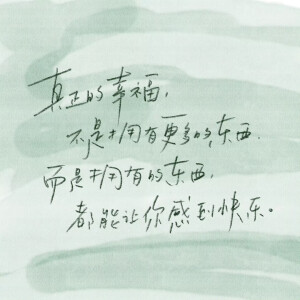 真正的幸福,
不是拥有更多的东西.
而是拥有的东西,
都能让你感到快乐。